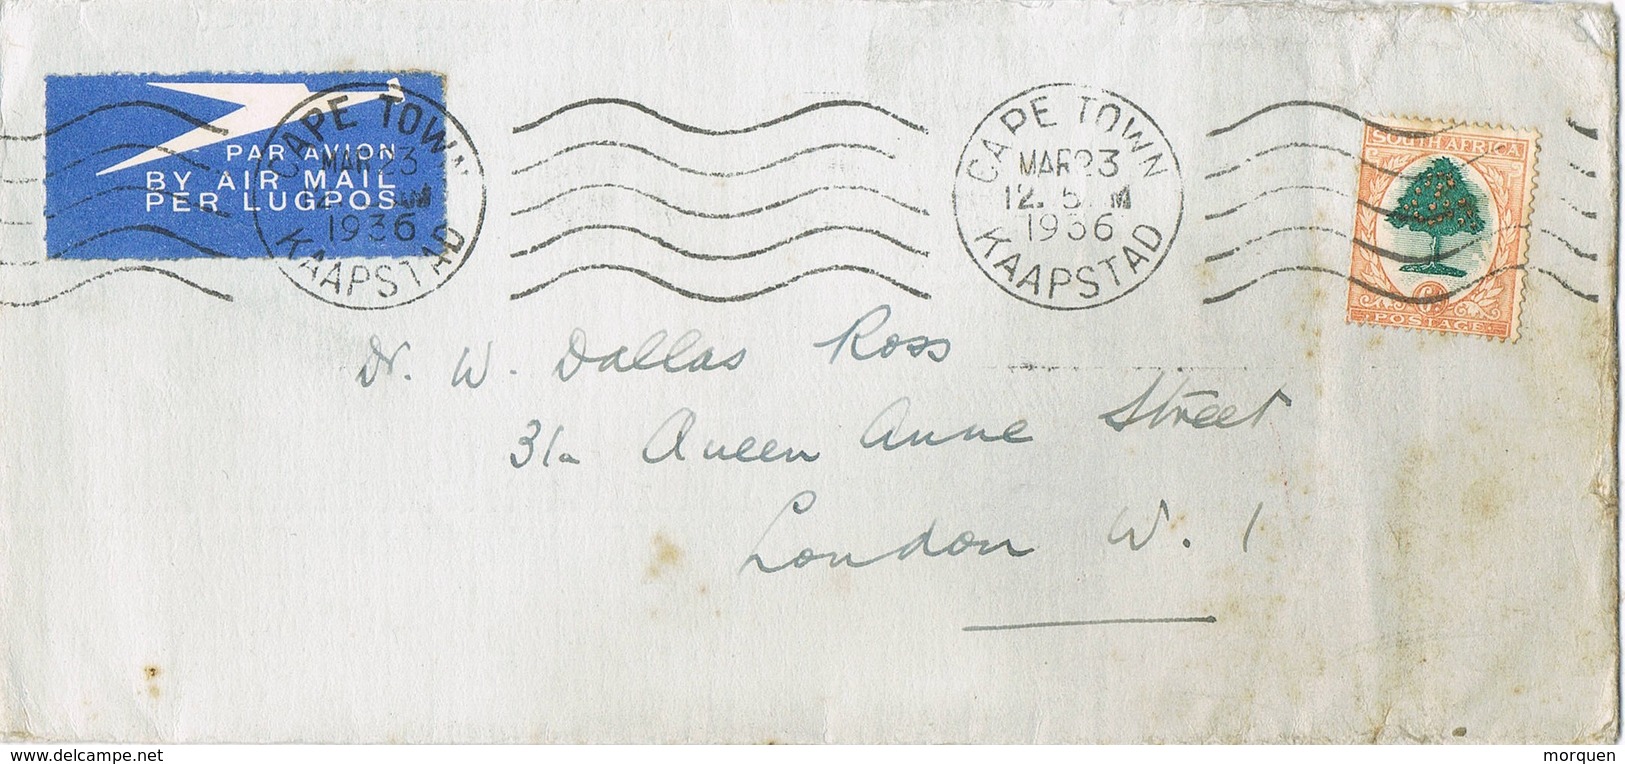 PAR AVION
BY AIR MAIL
PER LUGPOS
CAPE TOWN
MAR 23
1936
KAAPSTAD
CAPE TOWN
MAR 23
12. 5. M
1936
KAAPSTAD
SOUTH AFRICA
POSTAGE
Dr. W. Dallas Ross
31a Queen Anne Street
London W. 1
https://www.delcampe.net
morquen